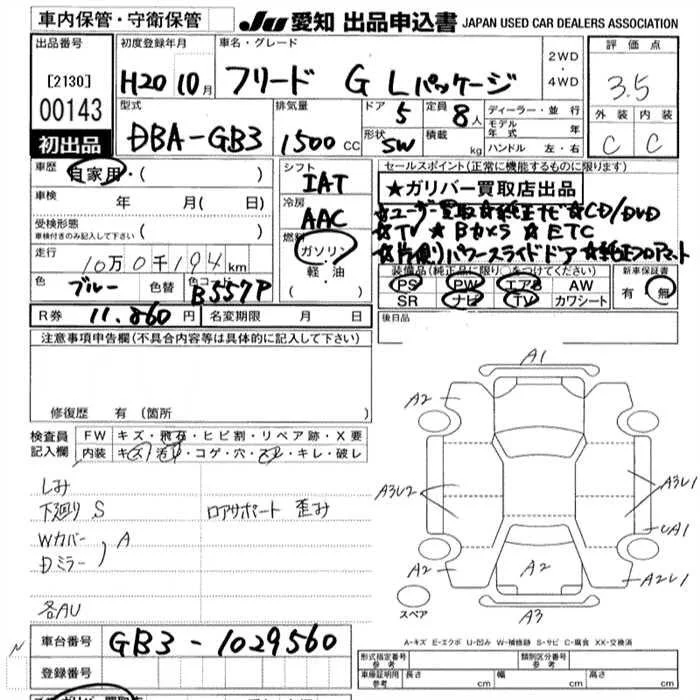 車内保管・守衛保管 JU 愛知 出品申込書 JAPAN USED CAR DEALERS ASSOCIATION
出品番号 初度登録年月 車名・グレード 2WD・4WD 評価点
[2130] H20 10月 フリード G Lパッケージ 3.5
00143 型式 排気量 ドア 5 定員 8人 ディーラー・並行 外装 内装
DBA-GB3 1500cc 形状 SW 積載 kg モデル年式 年 C C
初出品 ハンドル 左・右
車歴 自家用・( ) シフト セールスポイント(正常に機能するものに限ります)
車検 年 月(日) IAT ★ガリバー買取店出品
受検形態 冷房 ★ユーザー買取★純正ナビ★CD/DVD
車検付きのみ記入して下さい ( ) AAC ★TV ★Bカメラ ★ETC
走行 10万0千194km 燃料 ガソリン・軽油 ★片側パワースライドドア ★純正フロアマット
色 ブルー 色替 色コード B557P ( ) 装備品(純正品に限り○をつけてください) 新車保証書
PS PW エアB AW 有・無
R券 11,260円 名変期限 月 日 SR ナビ TV カワシート
注意事項申告欄(不具合内容等は具体的に記入して下さい) 後日品
修復歴 有 (箇所
検査員記入欄 FW キズ・飛石・ヒビ割・リペア跡・X要
内装 キズ・汚れ・コゲ・穴・スレ・キレ・破レ
しみ
下廻り S ロアサポート 歪み
Wカバー
Dミラー ) A
各AU
A1
A2
A3U2 A3U1
UA1
A2 A2 A2U1
スペア A3
A-キズ E-エクボ U-凹み W-補修跡 S-サビ C-腐食 XX-交換済
車台番号 GB3-1029560
登録番号
形式指定番号 参考 類別区分番号 参考
車庫証明用 参考 長さ cm 幅 cm 高さ cm